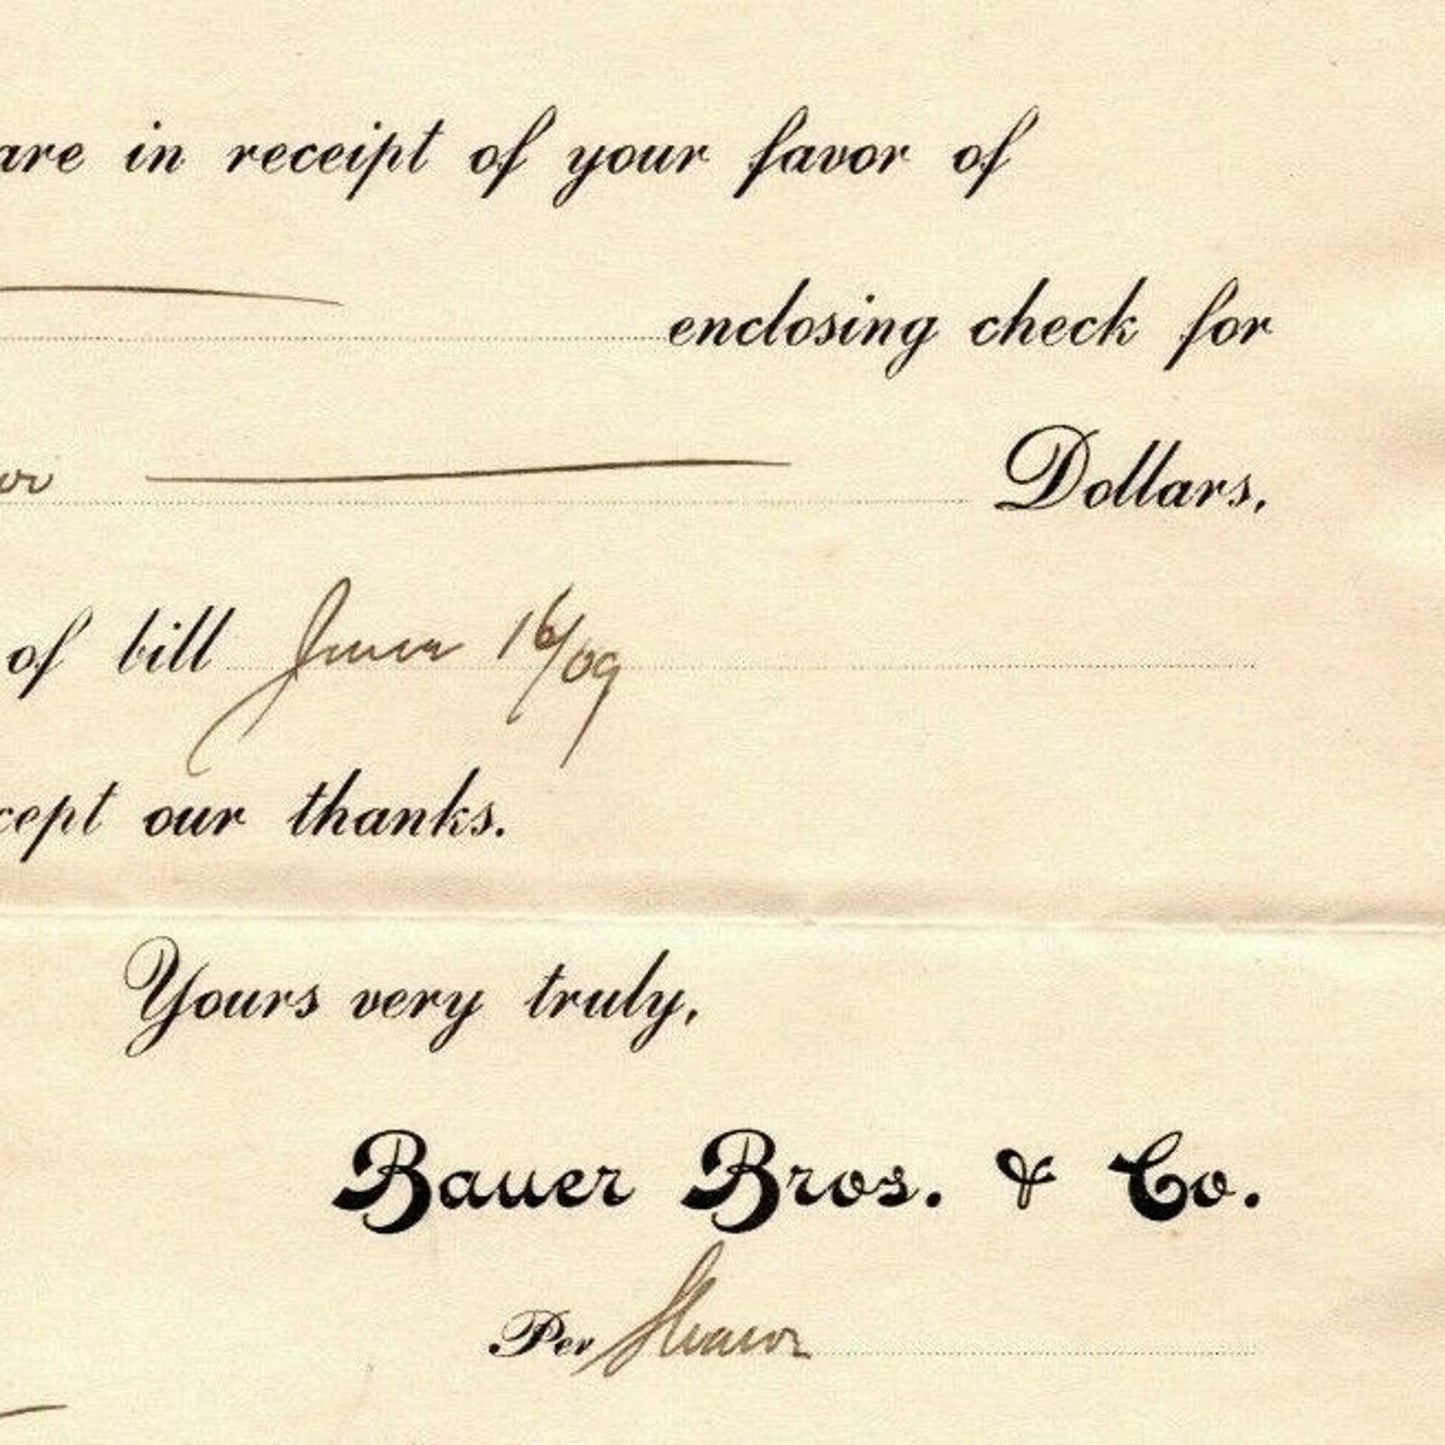 are in receipt of your favor of
enclosing check for
Dollars,
of bill June 16/09
cept our thanks.
Yours very truly,
Bauer Bros. & Co.
Per